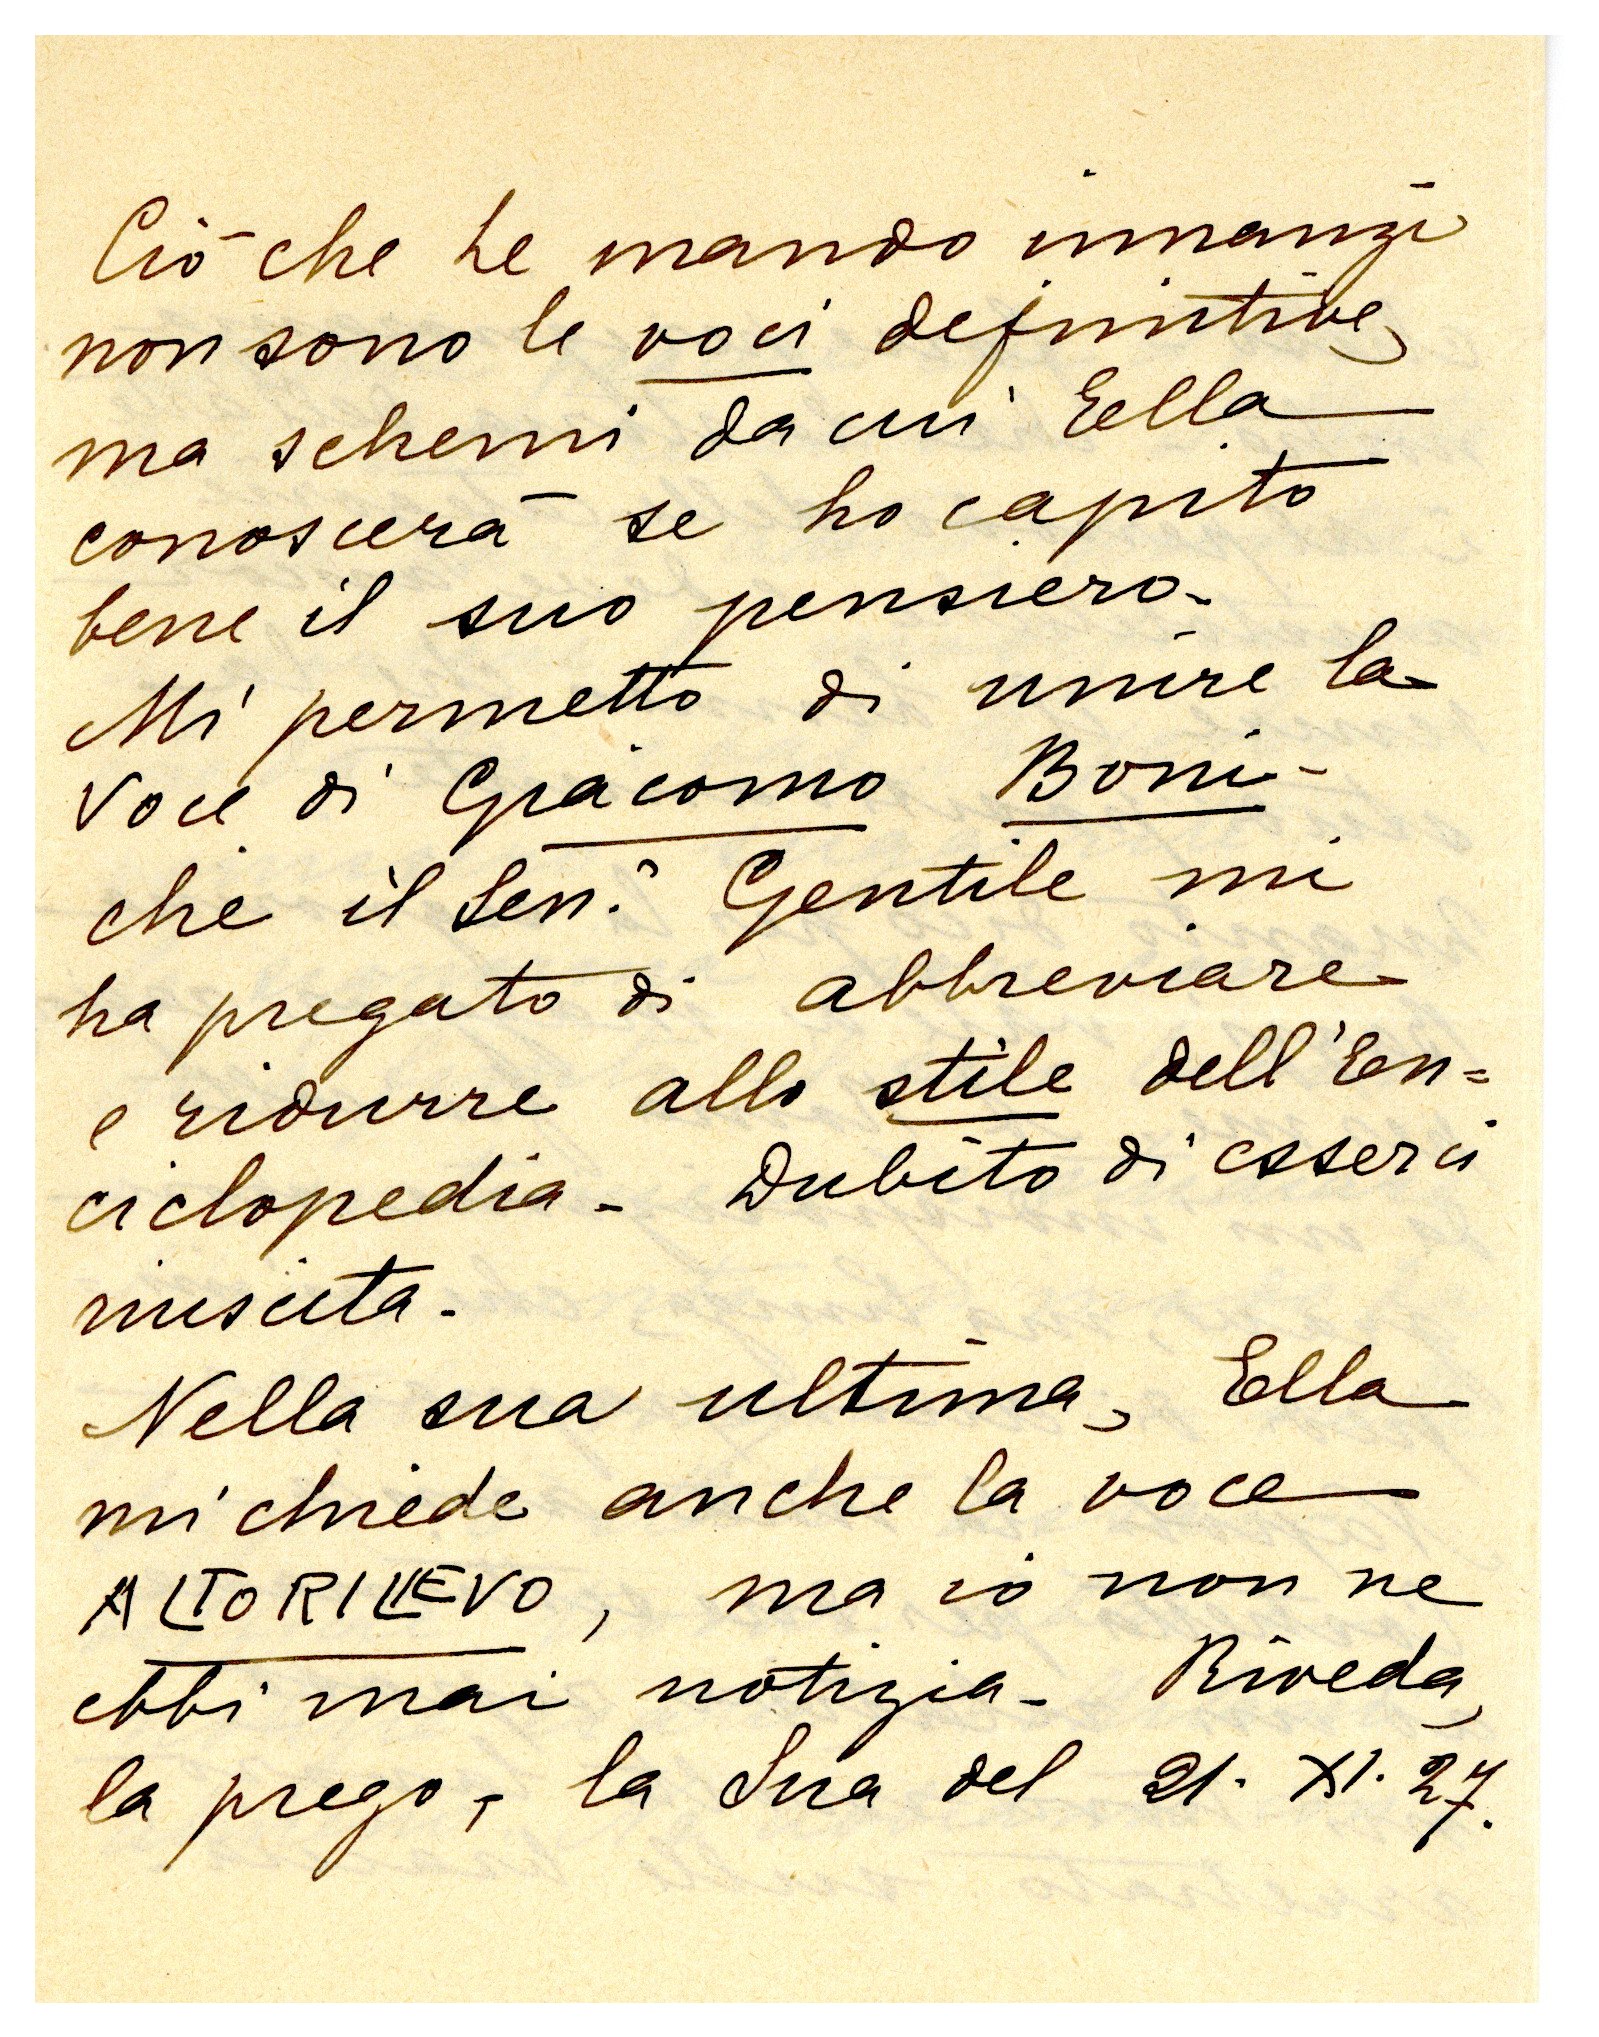 Ciò che Le mando innanzi
non sono le voci definitive,
ma schemi da cui Ella
conoscerà se ho capito
bene il suo pensiero.
Mi permetto di unire la
voce di Giacomo Boni -
che il Sen.e Gentile mi
ha pregato di abbreviare
e ridurre allo stile dell'En=
ciclopedia - Dubito di esserci
riuscita -
Nella sua ultima, Ella
mi chiede anche la voce
ALTORILIEVO, ma io non ne
ebbi mai notizia - Riveda,
la prego, la Sua del 21. XI. 27.